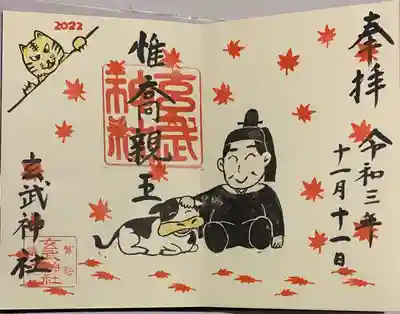 奉拝
令和三年
十一月十一日
惟喬親王
玄武神社
玄武神社
2022
玄武神社